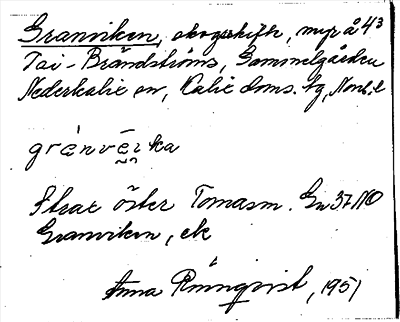 Granviken, skogsskifte, myr å 43
Tai-Brändströms, Gammelgården
Nederkalix sn, Kalix doms. tg, Norrb. l
grènvẽrka
Strax öster Tomasm. Gn 37 NO
Granviken, ek
Anna Rönnqvist, 1951